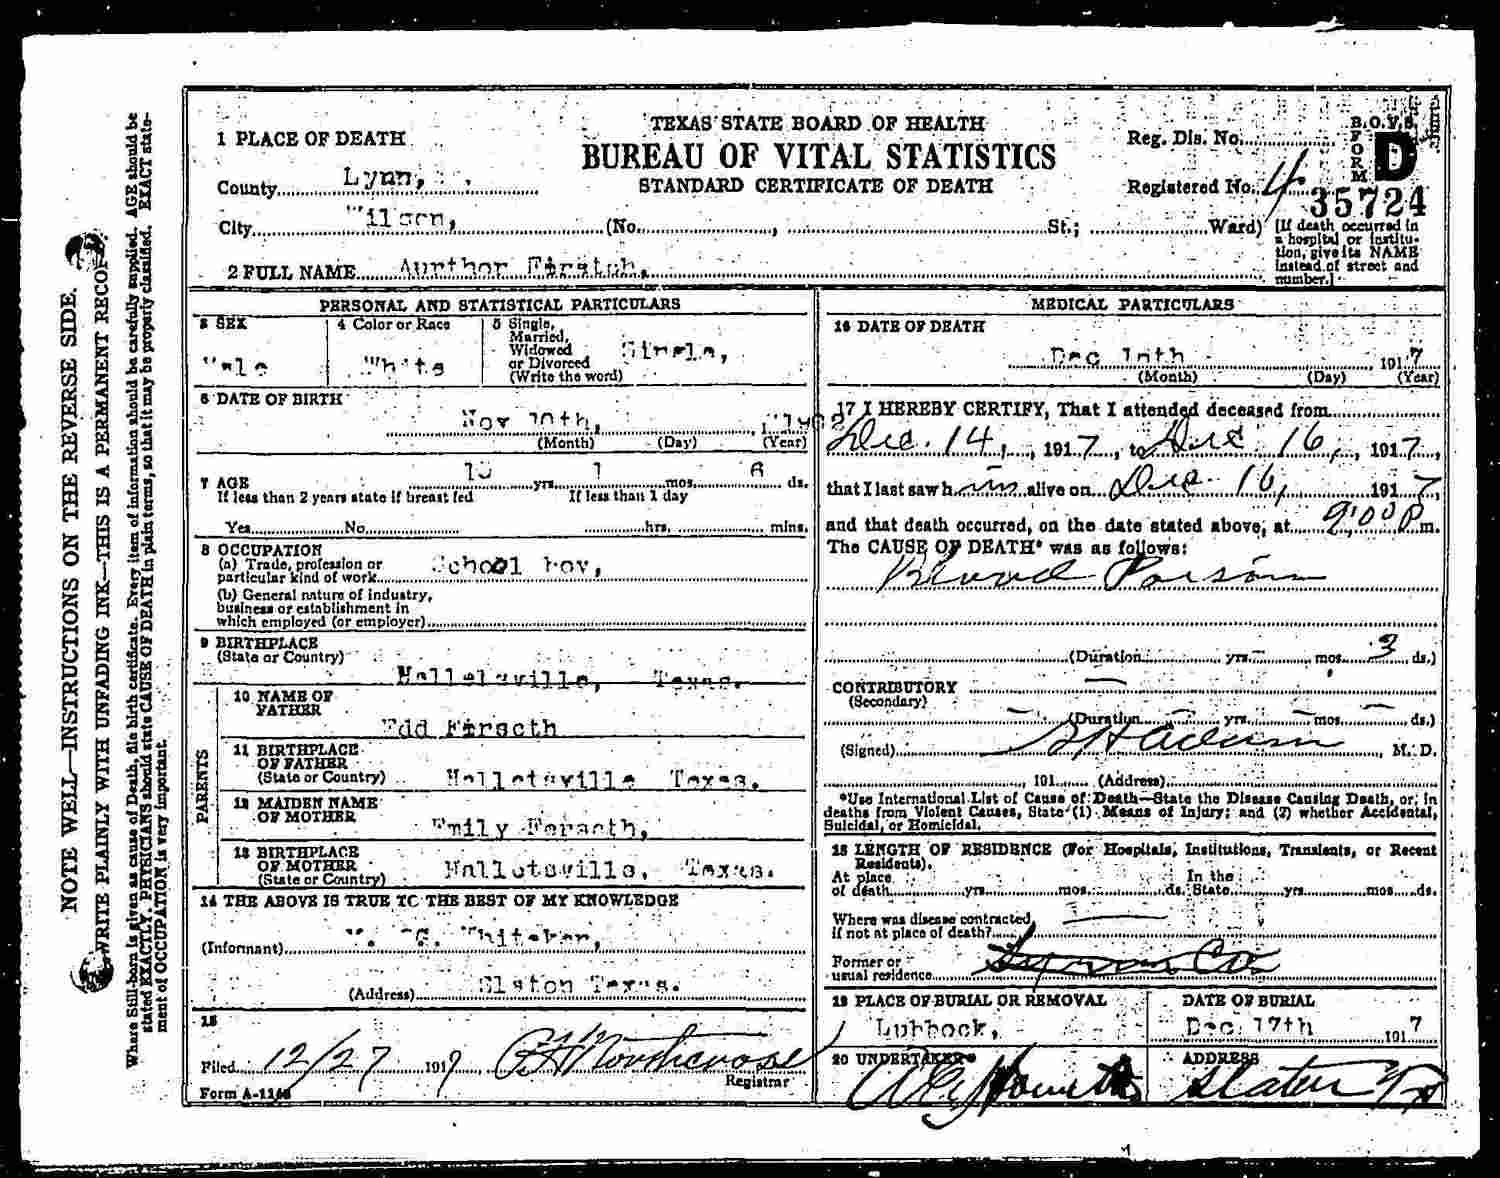 TEXAS STATE BOARD OF HEALTH
BUREAU OF VITAL STATISTICS
STANDARD CERTIFICATE OF DEATH
B.O.V.S.
FORM D
Reg. Dis. No.
Registered No. 4
35724
[If death occurred in a hospital or institution, give its NAME instead of street and number.]
1 PLACE OF DEATH
County Lynn,
City Wilson, (No. , St.; Ward)
2 FULL NAME Aurthor
PERSONAL AND STATISTICAL PARTICULARS
3 SEX
Male
4 Color or Race
White
5 Single, Married, Widowed or Divorced (Write the word)
Single,
6 DATE OF BIRTH
Nov 10th,
(Month) (Day) (Year)
7 AGE yrs. 1 mos. 6 ds.
If less than 2 years state if breast fed
If less than 1 day
Yes No hrs, mins.
8 OCCUPATION
(a) Trade, profession or particular kind of work School boy,
(b) General nature of industry, business or establishment in which employed (or employer)
9 BIRTHPLACE
(State or Country)
Halletsville, Texas.
PARENTS
10 NAME OF FATHER
Edd Firseth
11 BIRTHPLACE OF FATHER
(State or Country) Halletsville Texas.
12 MAIDEN NAME OF MOTHER
Emily Forseth,
13 BIRTHPLACE OF MOTHER
(State or Country)
Halletsville, Texas.
14 THE ABOVE IS TRUE TO THE BEST OF MY KNOWLEDGE
(Informant) Whiteker,
(Address) Slaton Texas.
15
Filed 12/27 1917
Registrar
Form A-1168
MEDICAL PARTICULARS
16 DATE OF DEATH
Dec 16th 1917
(Month) (Day) (Year)
17 I HEREBY CERTIFY, That I attended deceased from
Dec. 14, 1917, to Dec 16, 1917,
that I last saw him alive on Dec. 16, 1917,
and that death occurred, on the date stated above, at 9:00 P m.
The CAUSE OF DEATH* was as follows:
Blood Poison
(Duration yrs. mos. 3 ds.)
CONTRIBUTORY
(Secondary)
(Duration yrs. mos. ds.)
(Signed) M. D.
, 191 (Address)
*Use International List of Cause of Death—State the Disease Causing Death, or, in
deaths from Violent Causes, State (1) Means of Injury; and (2) whether Accidental,
Suicidal, or Homicidal.
18 LENGTH OF RESIDENCE (For Hospitals, Institutions, Transients, or Recent
Residents).
At place In the
of death yrs. mos. ds. State yrs. mos. ds.
Where was disease contracted,
If not at place of death?
Former or
usual residence
19 PLACE OF BURIAL OR REMOVAL
Lubbock,
DATE OF BURIAL
Dec 17th 1917
20 UNDERTAKER
ADDRESS
Slaton
NOTE WELL—INSTRUCTIONS ON THE REVERSE SIDE.
WRITE PLAINLY WITH UNFADING INK—THIS IS A PERMANENT RECORD
Where Still-born is given as cause of Death, file birth certificate. Every item of information should be carefully supplied. AGE should be
stated EXACTLY. PHYSICIANS should state CAUSE OF DEATH in plain terms, so that it may be properly classified. EXACT state-
ment of OCCUPATION is very important.